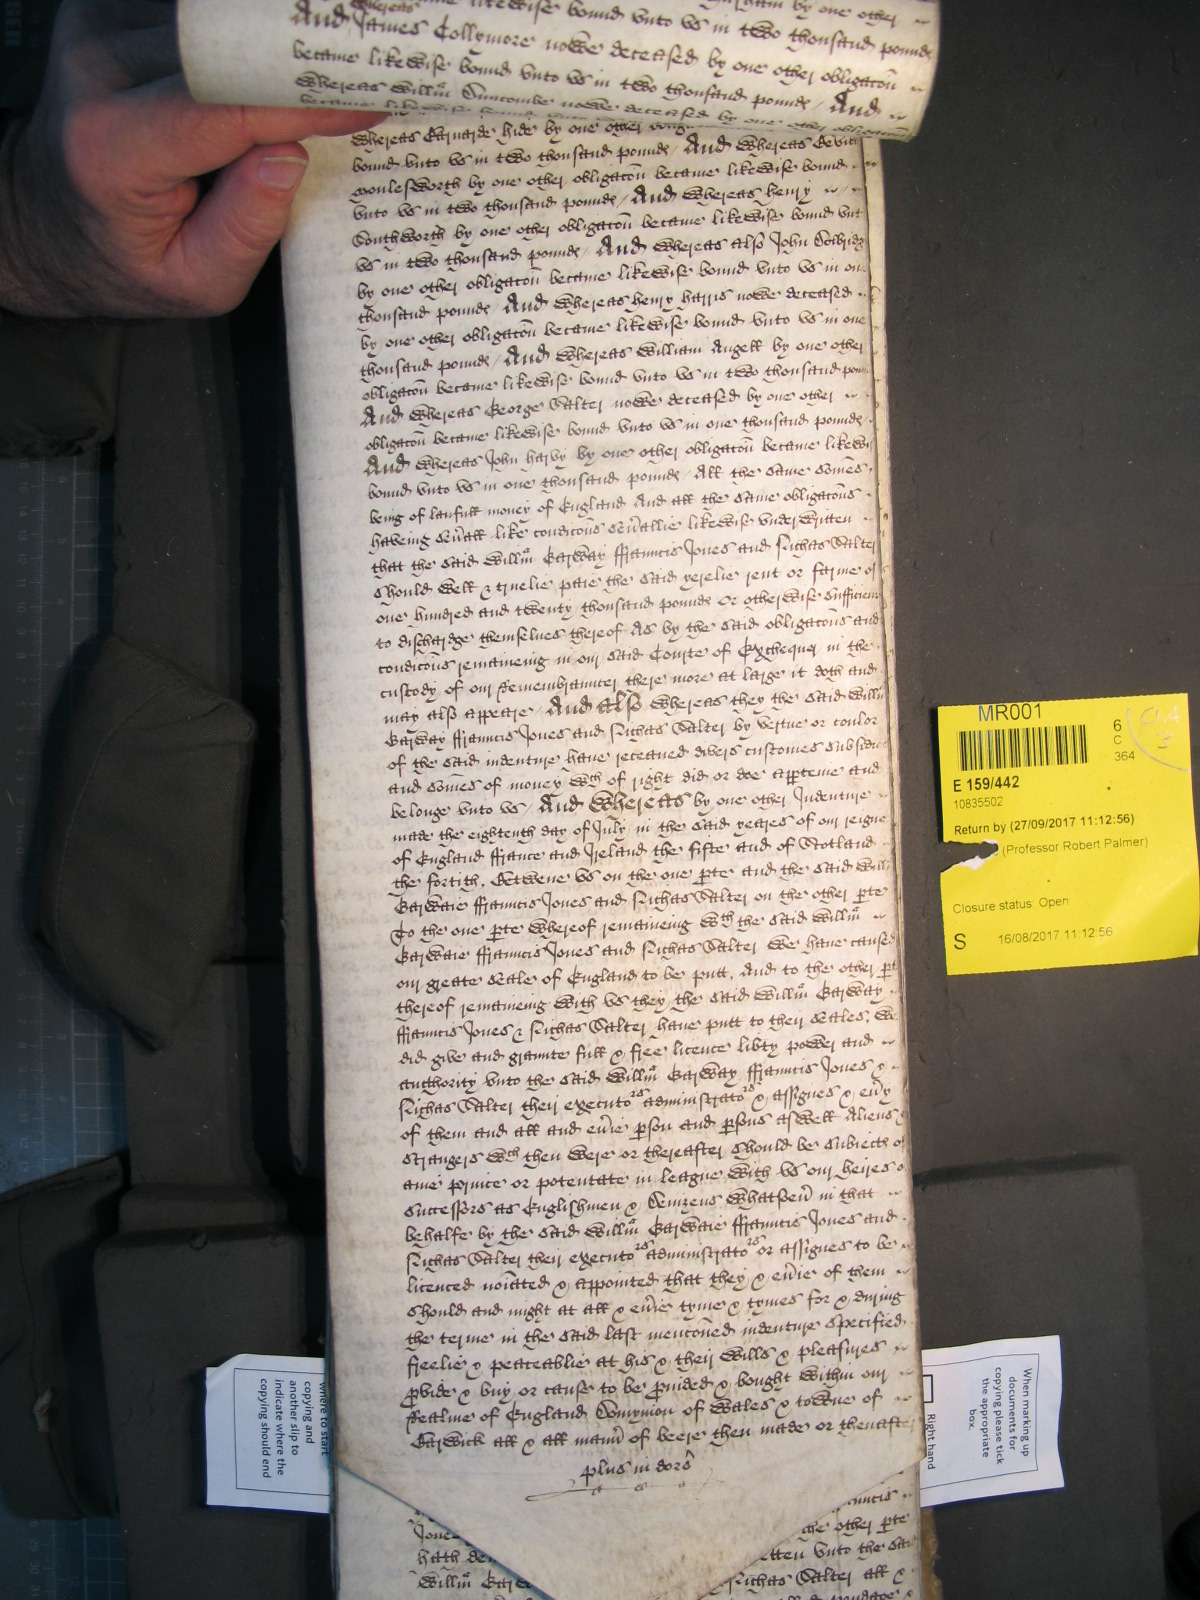 became likewise bound vnto vs in two thousand pounds
And whereas James Collymore nowe deceased by one other obligacōn
became likewise bound vnto vs in two thousand pounds / And
whereas Willm̄ Duncombe nowe deceased by one other obligacōn
became likewise
whereas Barnarde Hide by one other
bound vnto vs in two thousand pounds / And whereas
Moulesworth by one other obligacōn became likewise bound
vnto vs in two thousand pounds / And whereas Henry
Southworth by one other obligacōn became likewise bound vnt
vs in two thousand pounds / And whereas also John
by one other obligacōn became likewise bound vnto vs in one
thousand pounds / And whereas Henry Harris nowe deceased
by one other obligacōn became likewise bound vnto vs in one
thousand pounds / And whereas William Angell by one other
obligacōn became likewise bound vnto vs in two thousand poun
And whereas George Salter nowe deceased by one other
obligacōn became likewise bound vnto vs in one thousand pounds
And whereas John Harvy by one other obligacōn became likewi
bound vnto vs in one thousand pounds / All the same somēs
being of lawfull money of England And all the same obligacōns
haveing sev̄all like condicōns sev̄allie likewise vnderwritten
that the said Willm̄ Garway ffrauncis Jones and Nichas Salter
should well & truelie paie the said yerelie rent or farme of
one hundred and twenty thousand pounds Or otherwise sufficient
to dischardge themselues thereof As by the said obligacōns and
condicōns remaineing in our said Courte of Exchequer in the
custody of our Remembrauncer there more at large it doth and
may also appeare / And also whereas they the said Willm̄
Garway ffrauncis Jones and Nichas Salter by vertue or coulor
of the said indenture have receaued divers customes subsidies
and somēs of money wch of right did or doe app̱teine and
belonge vnto vs / And Whereas by one other Indenture
made the eighteenth day of July in the said yeares of our reigne
of England ffraunce and Ireland the fifte and of Scotland
the fortith. Betwene vs on the one p̱te and the said Willm̄
Garwaie ffrauncis Jones and Nichas Salter on the other p̱te
To the one p̱te whereof remaineing wth the said Willm̄
Garwaie ffrauncis Jones and Nichas Salter We have caused
our greate Seale of England to be putt, And to the other p̱t
thereof remaineing with vs they the said Willm̄ Garway
ffrauncis Jones & Nichas Salter have putt to their seales, We
did give and graunte full & free licence lib̄ty power and
authority vnto the said Willm̄ Garway ffrauncis Jones &
Nichas Salter their executors administrators & assignes & ev̄y
of them and all and ev̄ie p̱son and p̱sons aswell Aliens
strangers wch then were or thereafter should be subiects of
anie prince or potentate in league with vs our heires o
successors as Englishmen & Denizens whatsoev̄ in that
behalfe by the said Willm̄ Garwaie ffrauncis Jones and
Nichas Salter their executors administrators or assignes to be
licenced noīated & appointed that they & ev̄ie of them
should and might at all & ev̄ie tyme & tymes for & during
the terme in the said last menconed indenture specified
freelie & peaceablie at his & their wills & pleasures
p̱vide & buy or cause to be p̱uided & bought within our
Realme of England Dominion of Wales & towne of
Barwick all & all mann̄ of beere then made or thereafte
plus in dors̄
Jones
the other p̱te
hath
vnto the sai
Willm̄
Nichas Salter all &
MR001
6
C
364
E 159/442
10835502
Return by (27/09/2017 11:12:56)
(Professor Robert Palmer)
Closure status: Open
S 16/08/2017 11:12:56
where to start
copying and
another slip to
indicate where the
copying should end
When marking up
documents for
copying please tick
the appropriate
box.
Right hand